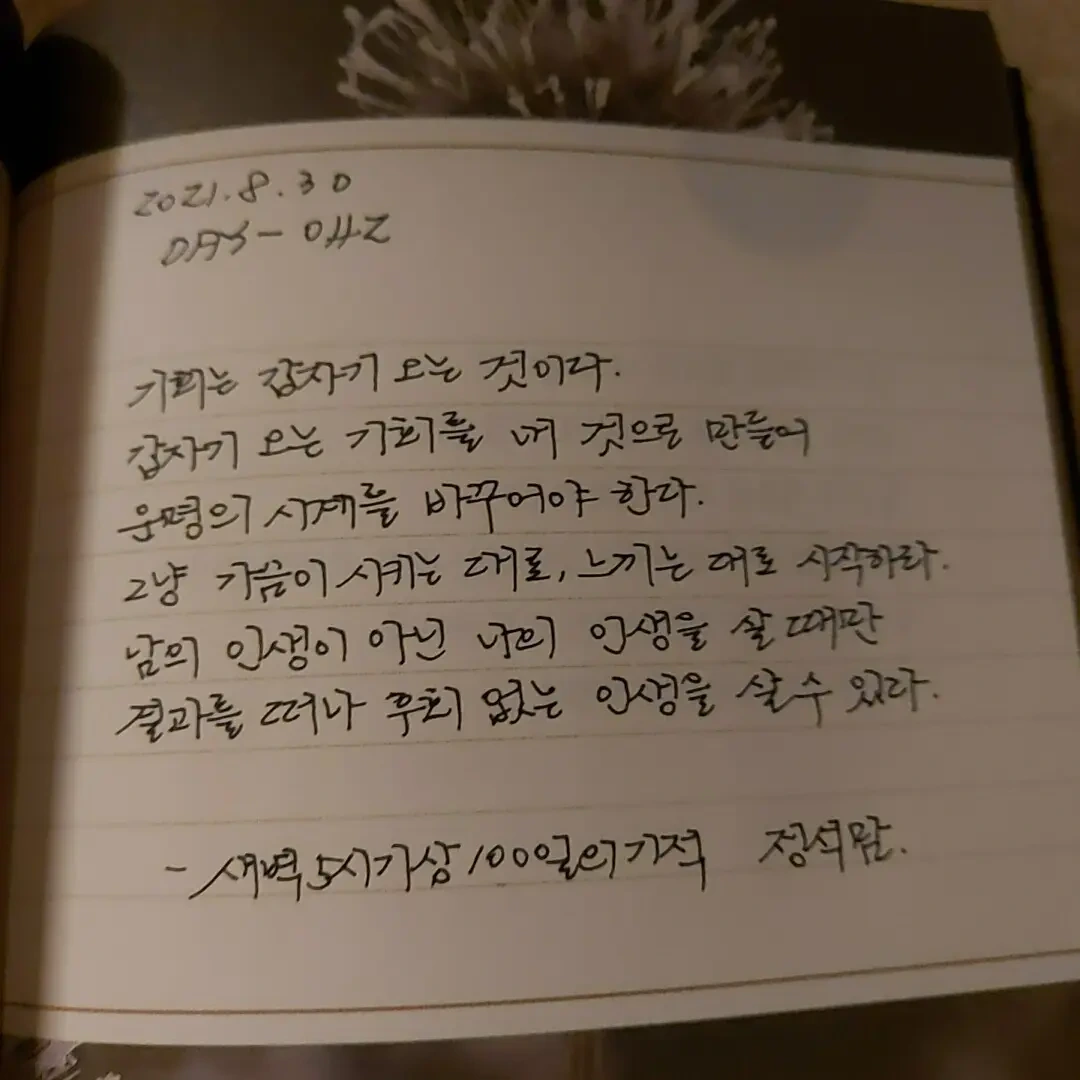 2021.8.30
DAY-042
기회는 갑자기 오는 것이다.
갑자기 오는 기회를 내 것으로 만들어
운명의 시계를 바꾸어야 한다.
그냥 가슴이 시키는 대로, 느끼는 대로 시작하라.
남의 인생이 아닌 나의 인생을 살 때만
결과를 떠나 후회 없는 인생을 살 수 있다.
- 새벽 5시 기상 100일의 기적